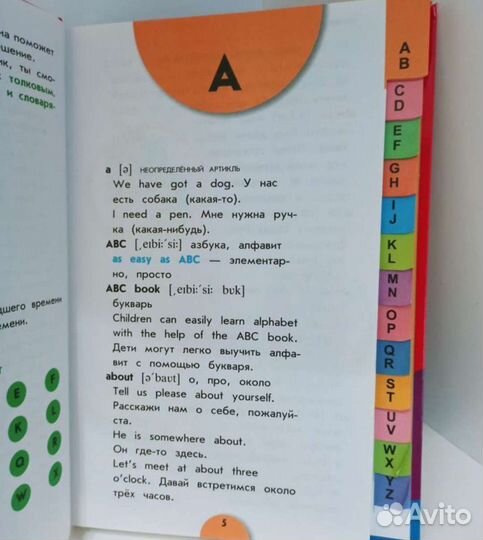 на поможет
шение.
ик, ты смо-
с толковым,
и словаря-
дшего времени
емени.
т
E
F
K
L
Q
R
W
X
A
a [ə] НЕОПРЕДЕЛЁННЫЙ АРТИКЛЬ
We have got a dog. У нас
есть собака (какая-то).
I need a pen. Мне нужна руч-
ка (какая-нибудь).
ABC [ˌeɪbiːˈsiː] азбука, алфавит
as easy as ABC — элементар-
но, просто
ABC book [ˌeɪbiːˈsiː bʊk]
букварь
Children can easily learn alphabet
with the help of the ABC book.
Дети могут легко выучить алфа-
вит с помощью букваря.
about [əˈbaʊt] о, про, около
Tell us please about yourself.
Расскажи нам о себе, пожалуй-
ста.
He is somewhere about.
Он где-то здесь.
Let's meet at about three
o'clock. Давай встретимся около
трёх часов.
5
A
B
C
D
E
F
G
H
I
J
K
L
M
N
O
P
Q
R
S
T
U
V
W
X
Y
Z
Avito